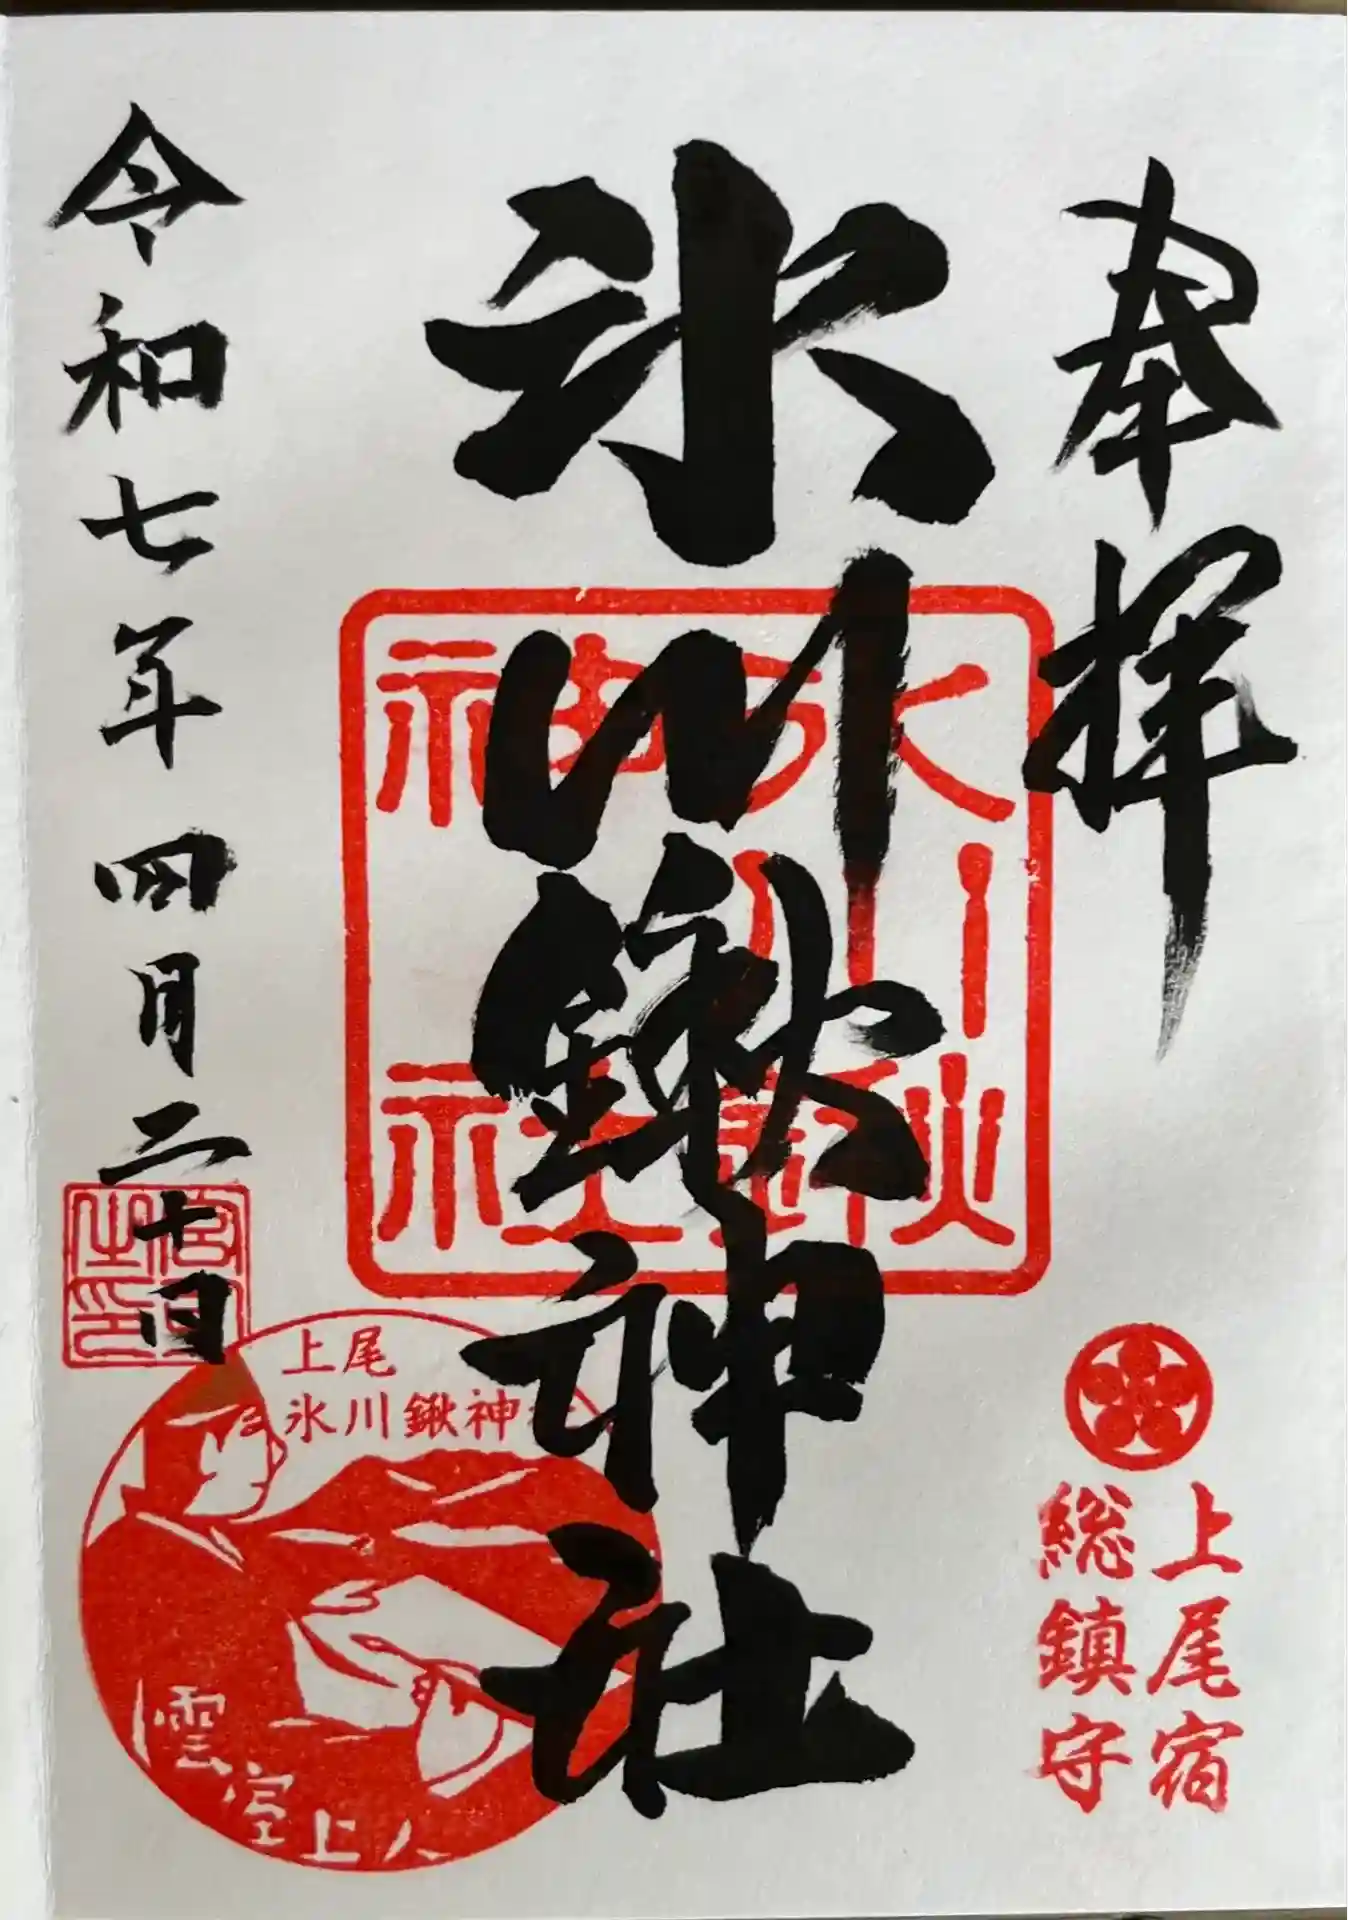 奉拝
上尾宿
総鎮守
氷川鍬神社
氷川
鍬
神社
上尾
氷川鍬神社
雲室上人
令和七年四月二十日
宮司
之印